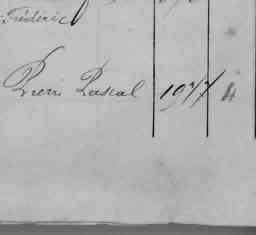 Frédéric
Pierre Pascal 1977 4